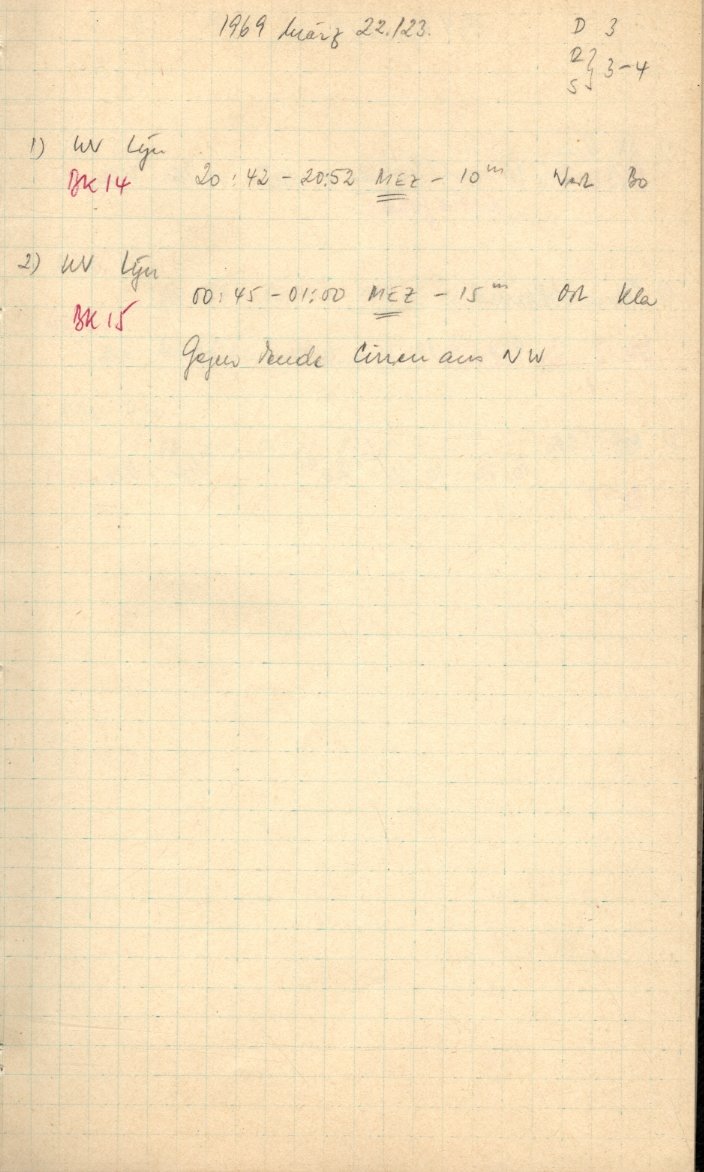 1969 März 22./23. D 3
R } 3-4
S
1) UV Lyn
BK 14 20:42 - 20:52 MEZ - 10m West Bo
2) UV Lyn
BK 15 00:45 - 01:00 MEZ - 15m Ost Kla
Gegen Ende Cirren aus NW